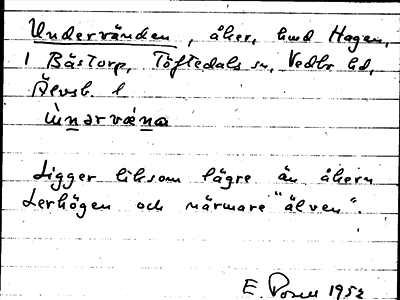 Undervänden, åker, hmd Hagen,
1 Bästorp, Töftedals sn, Vedbo hd,
Älvsb. l
ùnərvæ̀na
Ligger liksom lägre än åkern
Lerhögen och närmare "älven".
E. 1952